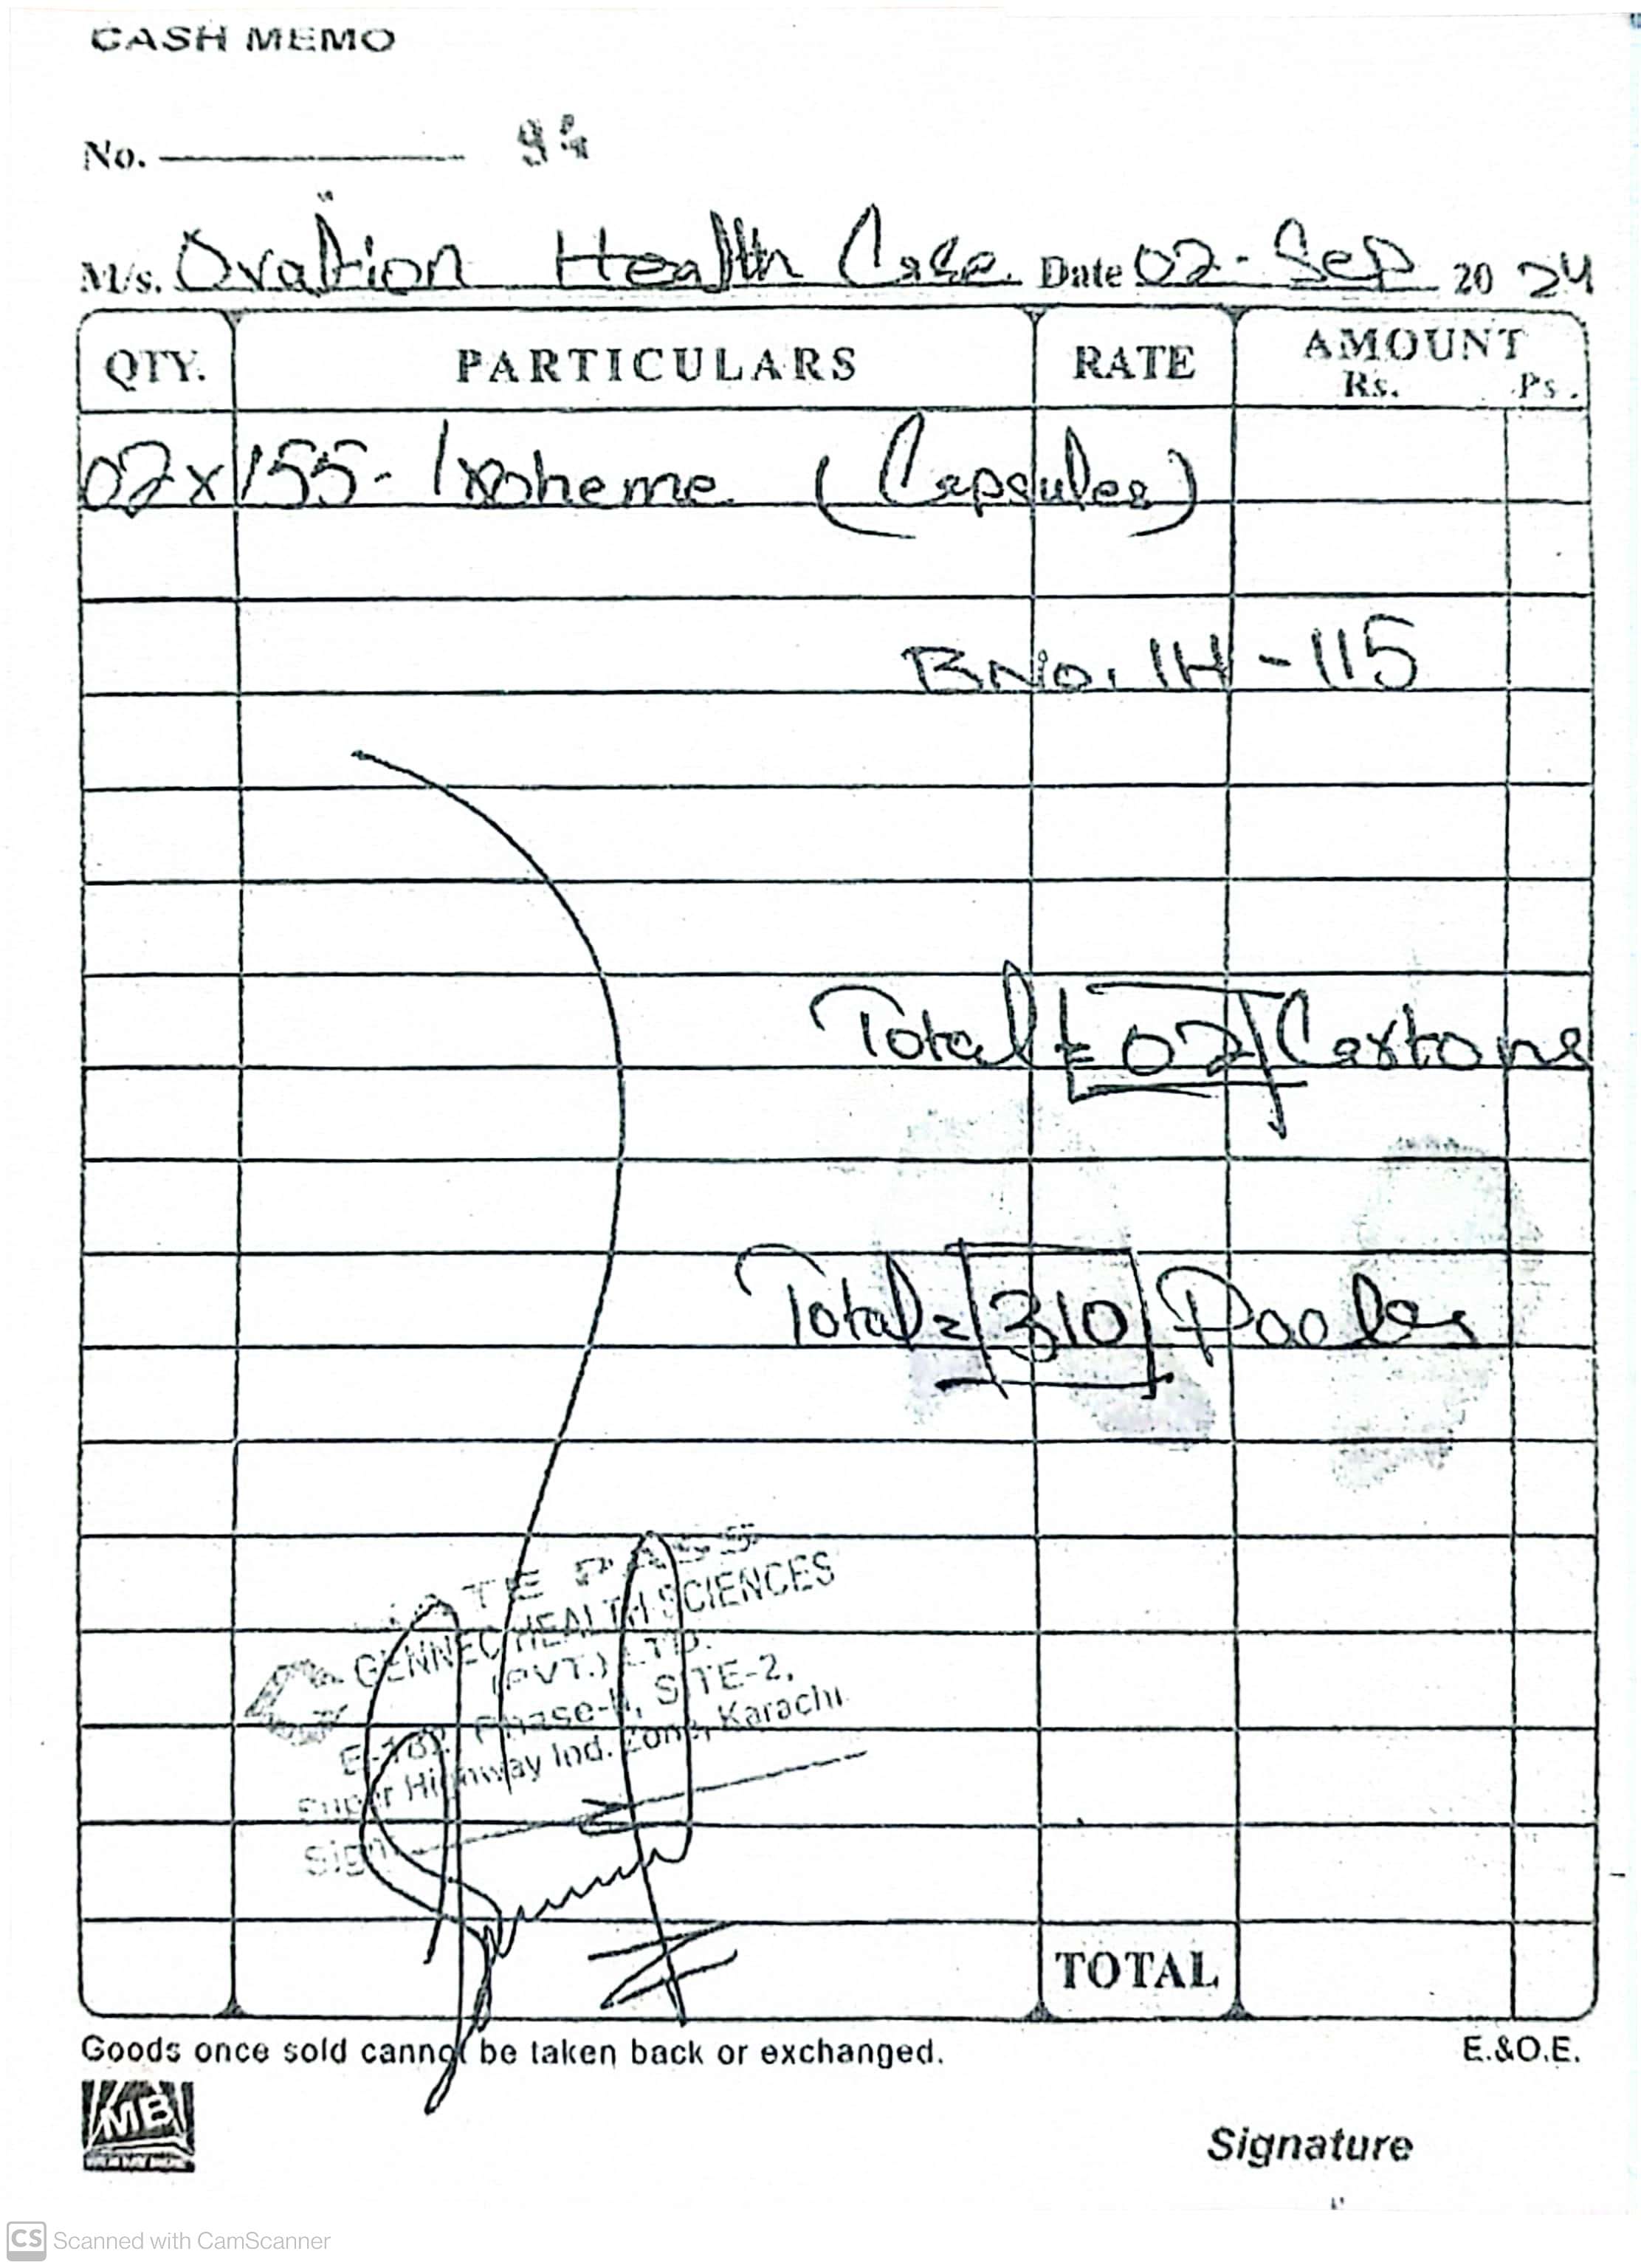 CASH MEMO
No.
M/s. Ovation Health Care Date 02-Sep 2024
QTY. PARTICULARS RATE AMOUNT
Rs. Ps.
02x155- Ixoheme (Capsules)
BNo. IH-115
Total = 02 Cartons
Total = 310
GATE PASS
GENNEC HEALTH SCIENCES
(PVT.) LTD.
Phase-II, SITE-2,
Super Highway Ind. Zone, Karachi
Sign
TOTAL
Goods once sold cannot be taken back or exchanged. E.&O.E.
MB
Signature
CS Scanned with CamScanner